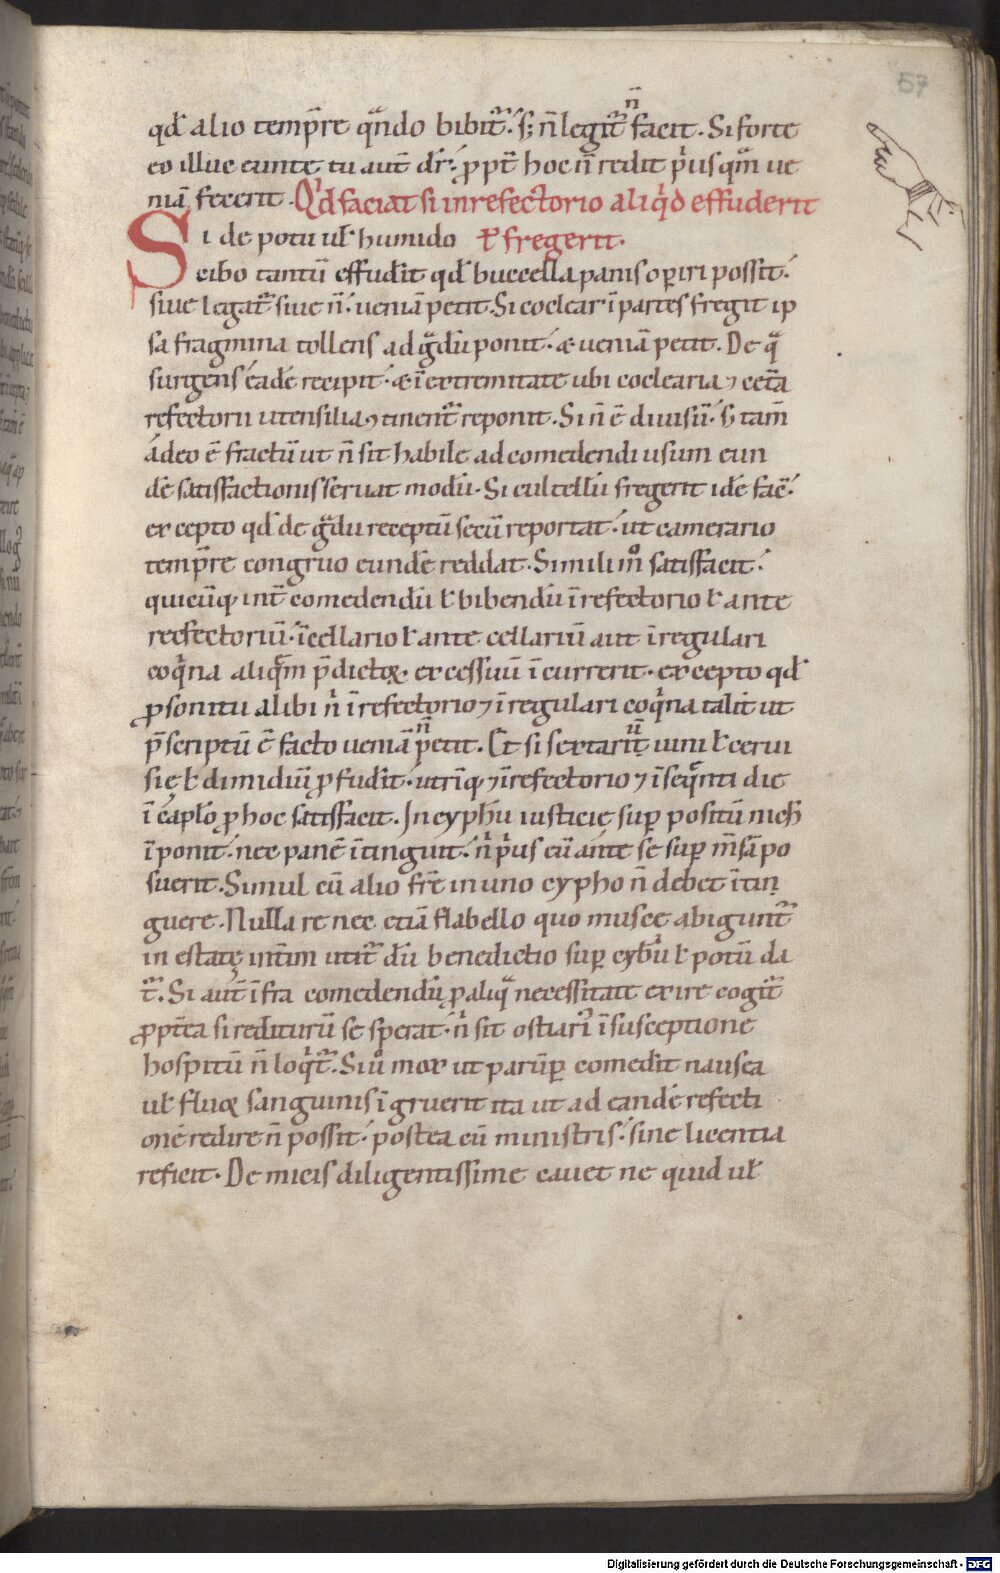 57
qđ alio temp̄re qᵃndo bibit᷑. ẜ; n̄ legit᷑ n̄ facit. Si forte
eo illuc eunte tu aut̄ dr̄. ꝓpt̄ hoc n̄ redit pⁱus qᵃm̄ ue
niā fecerit. Qⁱd faciat si in refectorio aliqⁱd effuderit
Si de potu ul̄ humido ł fregerit.
cibo tantū effudit qđ buccella panis oꝑiri possit.
siue legat᷑ siue n̄. ueniā petit. Si coclear ī partes fregit ip
sa fragmina tollens ad gᵃdū ponit. & ueniā petit. De qᵃ
surgens eadē recipit. & ī extremitate ubi coclearia ⁊ cet̄a
refectorii utensilia ꝯtinent᷑ reponit. Si n̄ ē diuisū. ẜ tam̄
adeo ē fractū ut n̄ sit habile ad comedendi usum eun
dē satisfactionis seruat modū. Si cultellū fregerit idē fac̄.
excepto qđ de gᵃdu receptū secū reportat. ut camerario
temp̄re congruo eundē reddat. Simili m̊ satisfacit.
quicūq; int̄ comedendū ł bibendū ī refectorio ł ante
recfectoriū. ī cellario ł ante cellariū aut ī regulari
coqⁱna aliqᵃm p̄dictoꝝ excessuū īcurrerit. excepto qđ
ꝓ sonitu alibi nⁱ ī refectorio ⁊ ī regulari coqⁱna talit̄ ut
p̄scriptū ē facto ueniā n̄ petit. Et si sextariū uini ł cerui
sie ł dimidiū ꝓfudit. utrīq; ⁊ ī refectorio ⁊ ī seqᵉnti die
ī capl̄o ꝓ hoc satisfacit. In cyphū iusticie suꝑpositū nich̄
īponit. nec panē ītinguit. nⁱ pⁱus eū ante se suꝑ m̄sā po
suerit. Simul cū alio fr̄e in uno cypho n̄ debet ītin
guere. Nulla re nec etiā flabello quo musce abigunt᷑
in estate int̄im utit᷑ dū benedictio suꝑ cybū ł potū da
t᷑. Si aut̄ īfra comedendū ꝓ aliqᵃ necessitate exire cogit᷑
ꝓpt̄ea si rediturū se sperat. nⁱ sit ostiari᷒ ī susceptione
hospitū n̄ loqⁱt᷑. Si ů mox ut parūꝑ comedit nausea
ul̄ fluxꝰ sanguinis īgruerit ita ut ad eandē refecti
onē redire n̄ possit. postea cū ministris. sine licentia
reficit. De micis diligentissime cauet ne quid ul̄
Digitalisierung gefördert durch die Deutsche Forschungsgemeinschaft - DFG